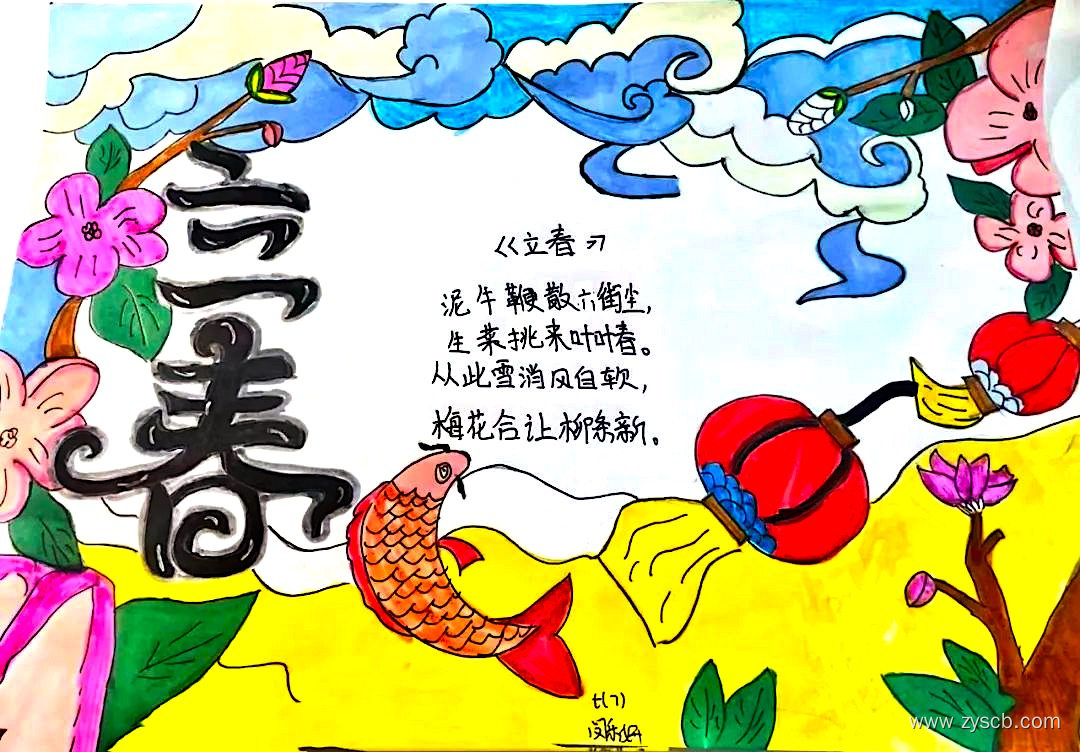 立春
《立春》
泥牛鞭散六街尘,
生菜挑来叶叶春。
从此雪消风自软,
梅花合让柳条新。
七(7)
www.zyscb.com